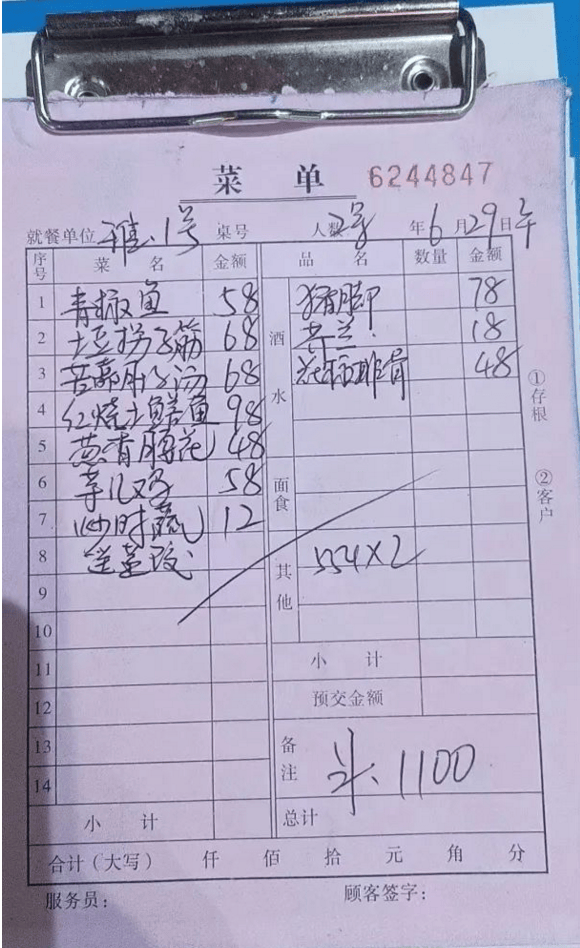 菜 单 6244847
就餐单位 雅 1号 桌号 人数 2号 年 6 月 29 日 午
序号 菜 名 金额 品 名 数量 金额
1 青椒鱼 58 酒水 猪脚 78
2 土豆拐子筋 68 18
3 肝子汤 68 花椒排骨 48
4 红烧土鲜鱼 98
5 葱香腰花 48
6 鸡 58 面食
7 炒时蔬 12
8 送韮 其他 554×2
9
10
11 小 计
12 预交金额
13 备注 斗、1100
14
小 计 总计
合计(大写) 仟 佰 拾 元 角 分
服务员: 顾客签字:
①存根
②客户